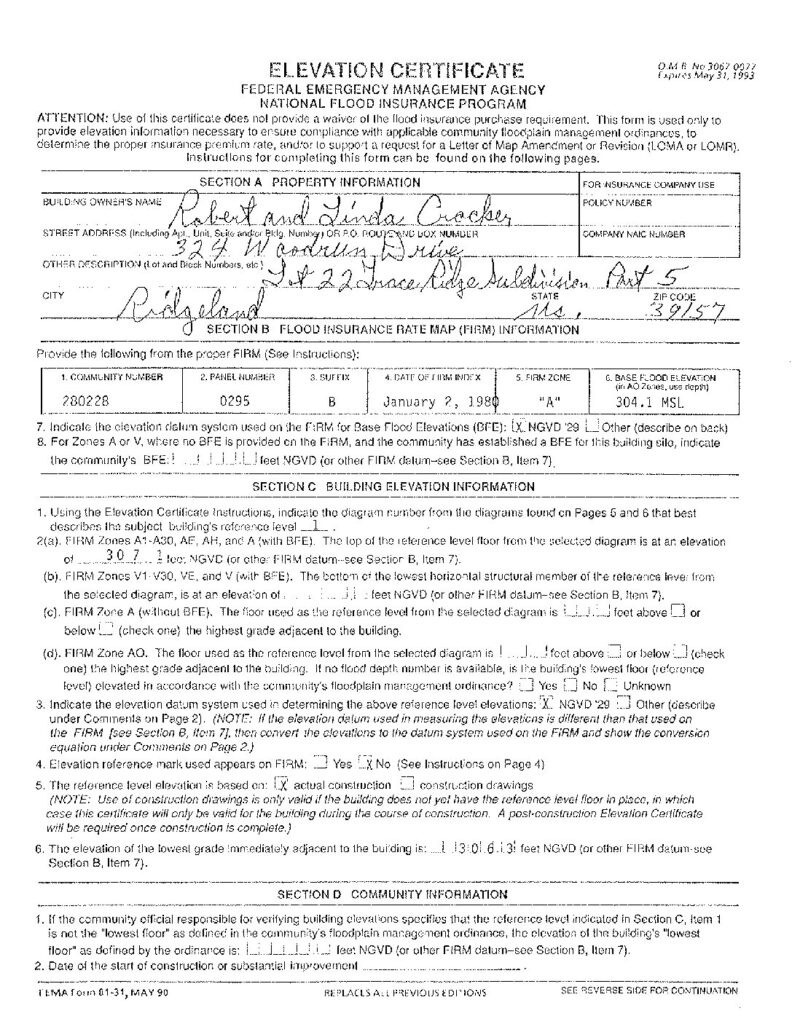 ELEVATION CERTIFICATE
O.M.B. No 3067-0077
Expires May 31, 1993
FEDERAL EMERGENCY MANAGEMENT AGENCY
NATIONAL FLOOD INSURANCE PROGRAM
ATTENTION: Use of this certificate does not provide a waiver of the flood insurance purchase requirement. This form is used only to
provide elevation information necessary to ensure compliance with applicable community floodplain management ordinances, to
determine the proper insurance premium rate, and/or to support a request for a Letter of Map Amendment or Revision (LOMA or LOMR).
Instructions for completing this form can be found on the following pages.
SECTION A PROPERTY INFORMATION
FOR INSURANCE COMPANY USE
BUILDING OWNER'S NAME
Robert and Linda Crocker
POLICY NUMBER
STREET ADDRESS (Including Apt., Unit, Suite and/or Bldg. Number) OR P.O. ROUTE AND BOX NUMBER
324 Woodrun Drive
COMPANY NAIC NUMBER
OTHER DESCRIPTION (Lot and Block Numbers, etc.)
Lot 22 Trace Ridge Subdivision Part 5
CITY STATE ZIP CODE
Ridgeland Ms. 39157
SECTION B FLOOD INSURANCE RATE MAP (FIRM) INFORMATION
Provide the following from the proper FIRM (See Instructions):
1. COMMUNITY NUMBER 2. PANEL NUMBER 3. SUFFIX 4. DATE OF FIRM INDEX 5. FIRM ZONE 6. BASE FLOOD ELEVATION
(in AO Zones, use depth)
280228 0295 B January 2, 1980 "A" 304.1 MSL
7. Indicate the elevation datum system used on the FIRM for Base Flood Elevations (BFE): X NGVD '29 Other (describe on back)
8. For Zones A or V, where no BFE is provided on the FIRM, and the community has established a BFE for this building site, indicate
the community's BFE: feet NGVD (or other FIRM datum–see Section B, Item 7).
SECTION C BUILDING ELEVATION INFORMATION
1. Using the Elevation Certificate Instructions, indicate the diagram number from the diagrams found on Pages 5 and 6 that best
describes the subject building's reference level 1 .
2(a). FIRM Zones A1-A30, AE, AH, and A (with BFE). The top of the reference level floor from the selected diagram is at an elevation
of 307.1 feet NGVD (or other FIRM datum–see Section B, Item 7).
(b). FIRM Zones V1-V30, VE, and V (with BFE). The bottom of the lowest horizontal structural member of the reference level from
the selected diagram, is at an elevation of feet NGVD (or other FIRM datum–see Section B, Item 7).
(c). FIRM Zone A (without BFE). The floor used as the reference level from the selected diagram is feet above or
below (check one) the highest grade adjacent to the building.
(d). FIRM Zone AO. The floor used as the reference level from the selected diagram is feet above or below (check
one) the highest grade adjacent to the building. If no flood depth number is available, is the building's lowest floor (reference
level) elevated in accordance with the community's floodplain management ordinance? Yes No Unknown
3. Indicate the elevation datum system used in determining the above reference level elevations: X NGVD '29 Other (describe
under Comments on Page 2). (NOTE: If the elevation datum used in measuring the elevations is different than that used on
the FIRM [see Section B, Item 7], then convert the elevations to the datum system used on the FIRM and show the conversion
equation under Comments on Page 2.)
4. Elevation reference mark used appears on FIRM: Yes X No (See Instructions on Page 4)
5. The reference level elevation is based on: X actual construction construction drawings
(NOTE: Use of construction drawings is only valid if the building does not yet have the reference level floor in place, in which
case this certificate will only be valid for the building during the course of construction. A post-construction Elevation Certificate
will be required once construction is complete.)
6. The elevation of the lowest grade immediately adjacent to the building is: 306.3 feet NGVD (or other FIRM datum-see
Section B, Item 7).
SECTION D COMMUNITY INFORMATION
1. If the community official responsible for verifying building elevations specifies that the reference level indicated in Section C, Item 1
is not the "lowest floor" as defined in the community's floodplain management ordinance, the elevation of the building's "lowest
floor" as defined by the ordinance is: feet NGVD (or other FIRM datum–see Section B, Item 7).
2. Date of the start of construction or substantial improvement
FEMA Form 81-31, MAY 90 REPLACES ALL PREVIOUS EDITIONS SEE REVERSE SIDE FOR CONTINUATION